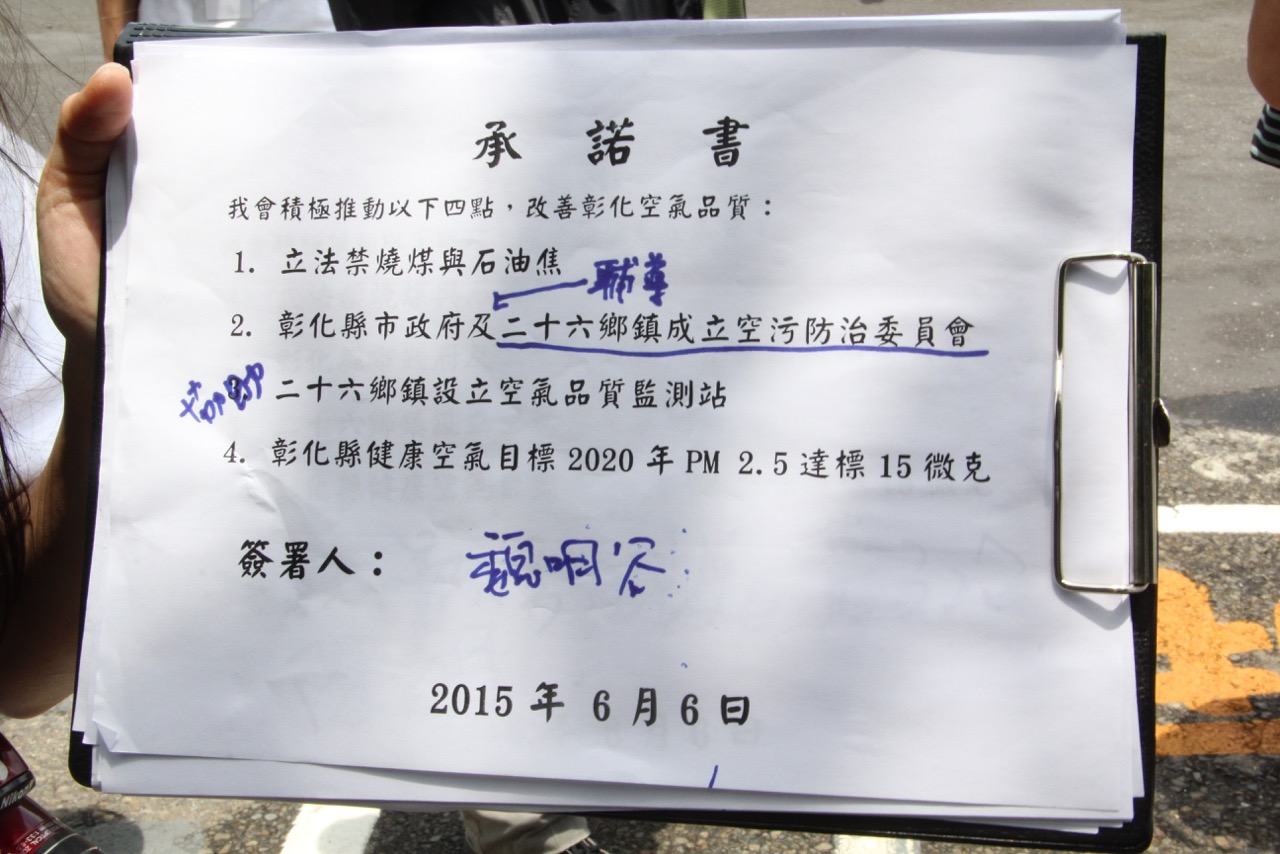 承諾書
我會積極推動以下四點，改善彰化空氣品質：
1. 立法禁燒煤與石油焦
輔導
2. 彰化縣市政府及二十六鄉鎮成立空污防治委員會
3. 二十六鄉鎮設立空氣品質監測站
4. 彰化縣健康空氣目標 2020 年 PM 2.5 達標 15 微克
簽署人：魏明谷
2015 年 6 月 6 日
Nikon